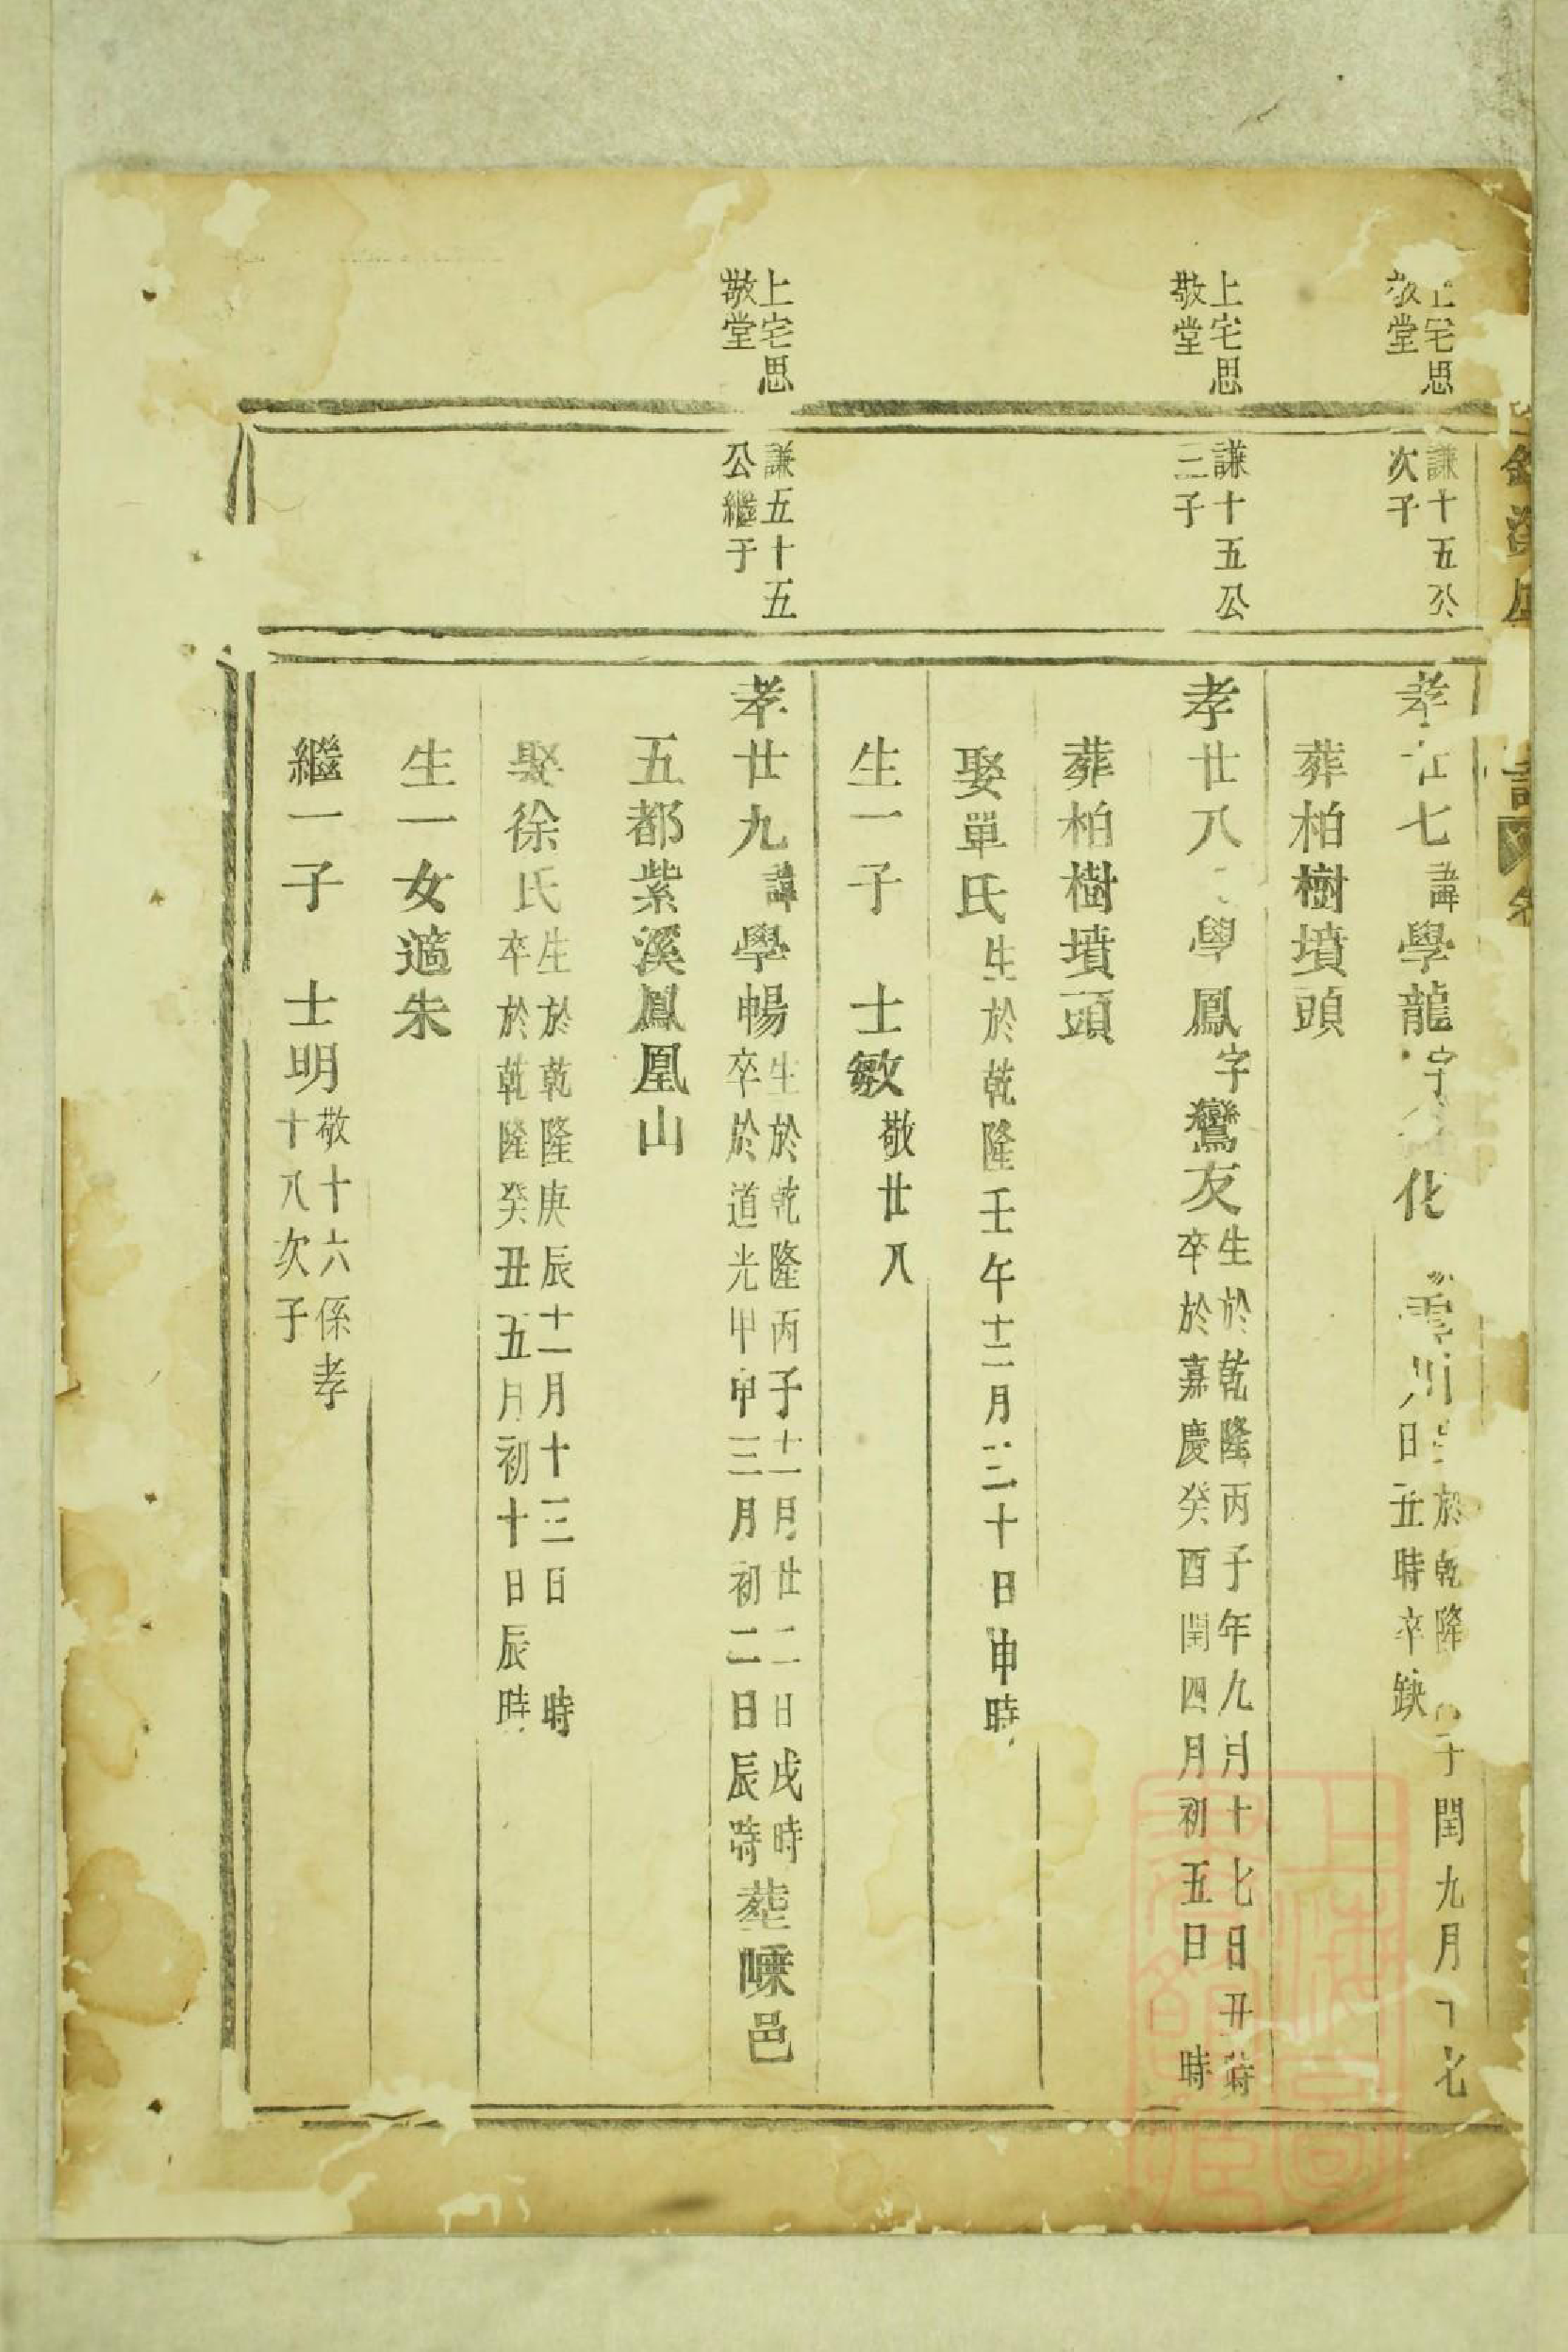 上宅思
敬堂
謙十五公
次子
孝廿七諱學龍字化雲川
生於乾隆子閏九月十七
日丑時卒缺
葬柏樹墳頭
上宅思
敬堂
謙十五公
三子
孝廿八學鳳字鸞友
生於乾隆丙子年九月十七日丑時
卒於嘉慶癸酉閏四月初五日時
葬柏樹墳頭
娶單氏生於乾隆壬午十二月三十日申時
生一子 士敏敬廿八
上宅思
敬堂
謙五十五
公繼子
孝廿九諱學暢
生於乾隆丙子十一月廿二日戌時
卒於道光甲申三月初二日辰時
葬嵊邑
五都紫溪鳳凰山
娶徐氏
生於乾隆庚辰十一月十三日 時
卒於乾隆癸丑五月初十日辰時
生一女適朱
繼一子 士明
敬十六係孝
十八次子